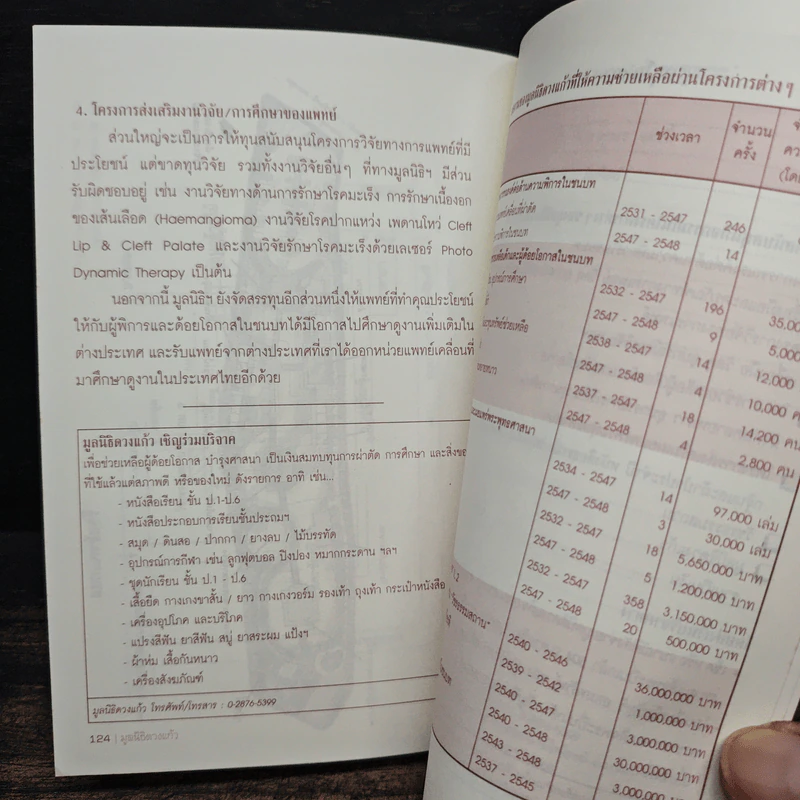 4. โครงการส่งเสริมงานวิจัย/การศึกษาของแพทย์
ส่วนใหญ่จะเป็นการให้ทุนสนับสนุนโครงการวิจัยทางการแพทย์ที่มี
ประโยชน์ แต่ขาดทุนวิจัย รวมทั้งงานวิจัยอื่นๆ ที่ทางมูลนิธิฯ มีส่วน
รับผิดชอบอยู่ เช่น งานวิจัยทางด้านการรักษาโรคมะเร็ง การรักษาเนื้องอก
ของเส้นเลือด (Haemangioma) งานวิจัยโรคปากแหว่ง เพดานโหว่ Cleft
Lip & Cleft Palate และงานวิจัยรักษาโรคมะเร็งด้วยเลเซอร์ Photo
Dynamic Therapy เป็นต้น
นอกจากนี้ มูลนิธิฯ ยังจัดสรรทุนอีกส่วนหนึ่งให้แพทย์ที่ทำคุณประโยชน์
ให้กับผู้พิการและด้อยโอกาสในชนบทได้มีโอกาสไปศึกษาดูงานเพิ่มเติมใน
ต่างประเทศ และรับแพทย์จากต่างประเทศที่เราได้ออกหน่วยแพทย์เคลื่อนที่
มาศึกษาดูงานในประเทศไทยอีกด้วย
มูลนิธิดวงแก้ว เชิญร่วมบริจาค
เพื่อช่วยเหลือผู้ด้อยโอกาส บำรุงศาสนา เป็นเงินสมทบทุนการผ่าตัด การศึกษา และสิ่งของ
ที่ใช้แล้วแต่สภาพดี หรือของใหม่ ดังรายการ อาทิ เช่น...
- หนังสือเรียน ชั้น ป.1-ป.6
- หนังสือประกอบการเรียนชั้นประถมฯ
- สมุด / ดินสอ / ปากกา / ยางลบ / ไม้บรรทัด
- อุปกรณ์การกีฬา เช่น ลูกฟุตบอล ปิงปอง หมากกระดาน ฯลฯ
- ชุดนักเรียน ชั้น ป.1 - ป.6
- เสื้อยืด กางเกงขาสั้น / ยาว กางเกงวอร์ม รองเท้า ถุงเท้า กระเป๋าหนังสือ
- เครื่องอุปโภค และบริโภค
- แปรงสีฟัน ยาสีฟัน สบู่ ยาสระผม แป้งฯ
- ผ้าห่ม เสื้อกันหนาว
- เครื่องสังฆภัณฑ์
มูลนิธิดวงแก้ว โทรศัพท์/โทรสาร : 0-2876-5399
124 | มูลนิธิดวงแก้ว
มูลนิธิดวงแก้วที่ให้ความช่วยเหลือผ่านโครงการต่างๆ
ช่วงเวลา จำนวน
ครั้ง
ด้านความพิการในชนบท
2531 - 2547 246
2547 - 2548 14
และผู้ด้อยโอกาสในชนบท
อุปกรณ์การศึกษา
2532 - 2547 196 35,00
2547 - 2548 9 5,000
2538 - 2547 14 12,000
2547 - 2548 4 10,000 คน
2537 - 2547 18 14,200 คน
2547 - 2548 4 2,800 คน
เผยแพร่พระพุทธศาสนา
2534 - 2547 14 97,000 เล่ม
2547 - 2548 3 30,000 เล่ม
2532 - 2547 18 5,650,000 บาท
2547 - 2548 5 1,200,000 บาท
2532 - 2547 358 3,150,000 บาท
2547 - 2548 20 500,000 บาท
2540 - 2546 36,000,000 บาท
2539 - 2542 1,000,000 บาท
2540 - 2547 3,000,000 บาท
2540 - 2548 30,000,000 บาท
2543 - 2548 3,000,000 บาท
2537 - 2545